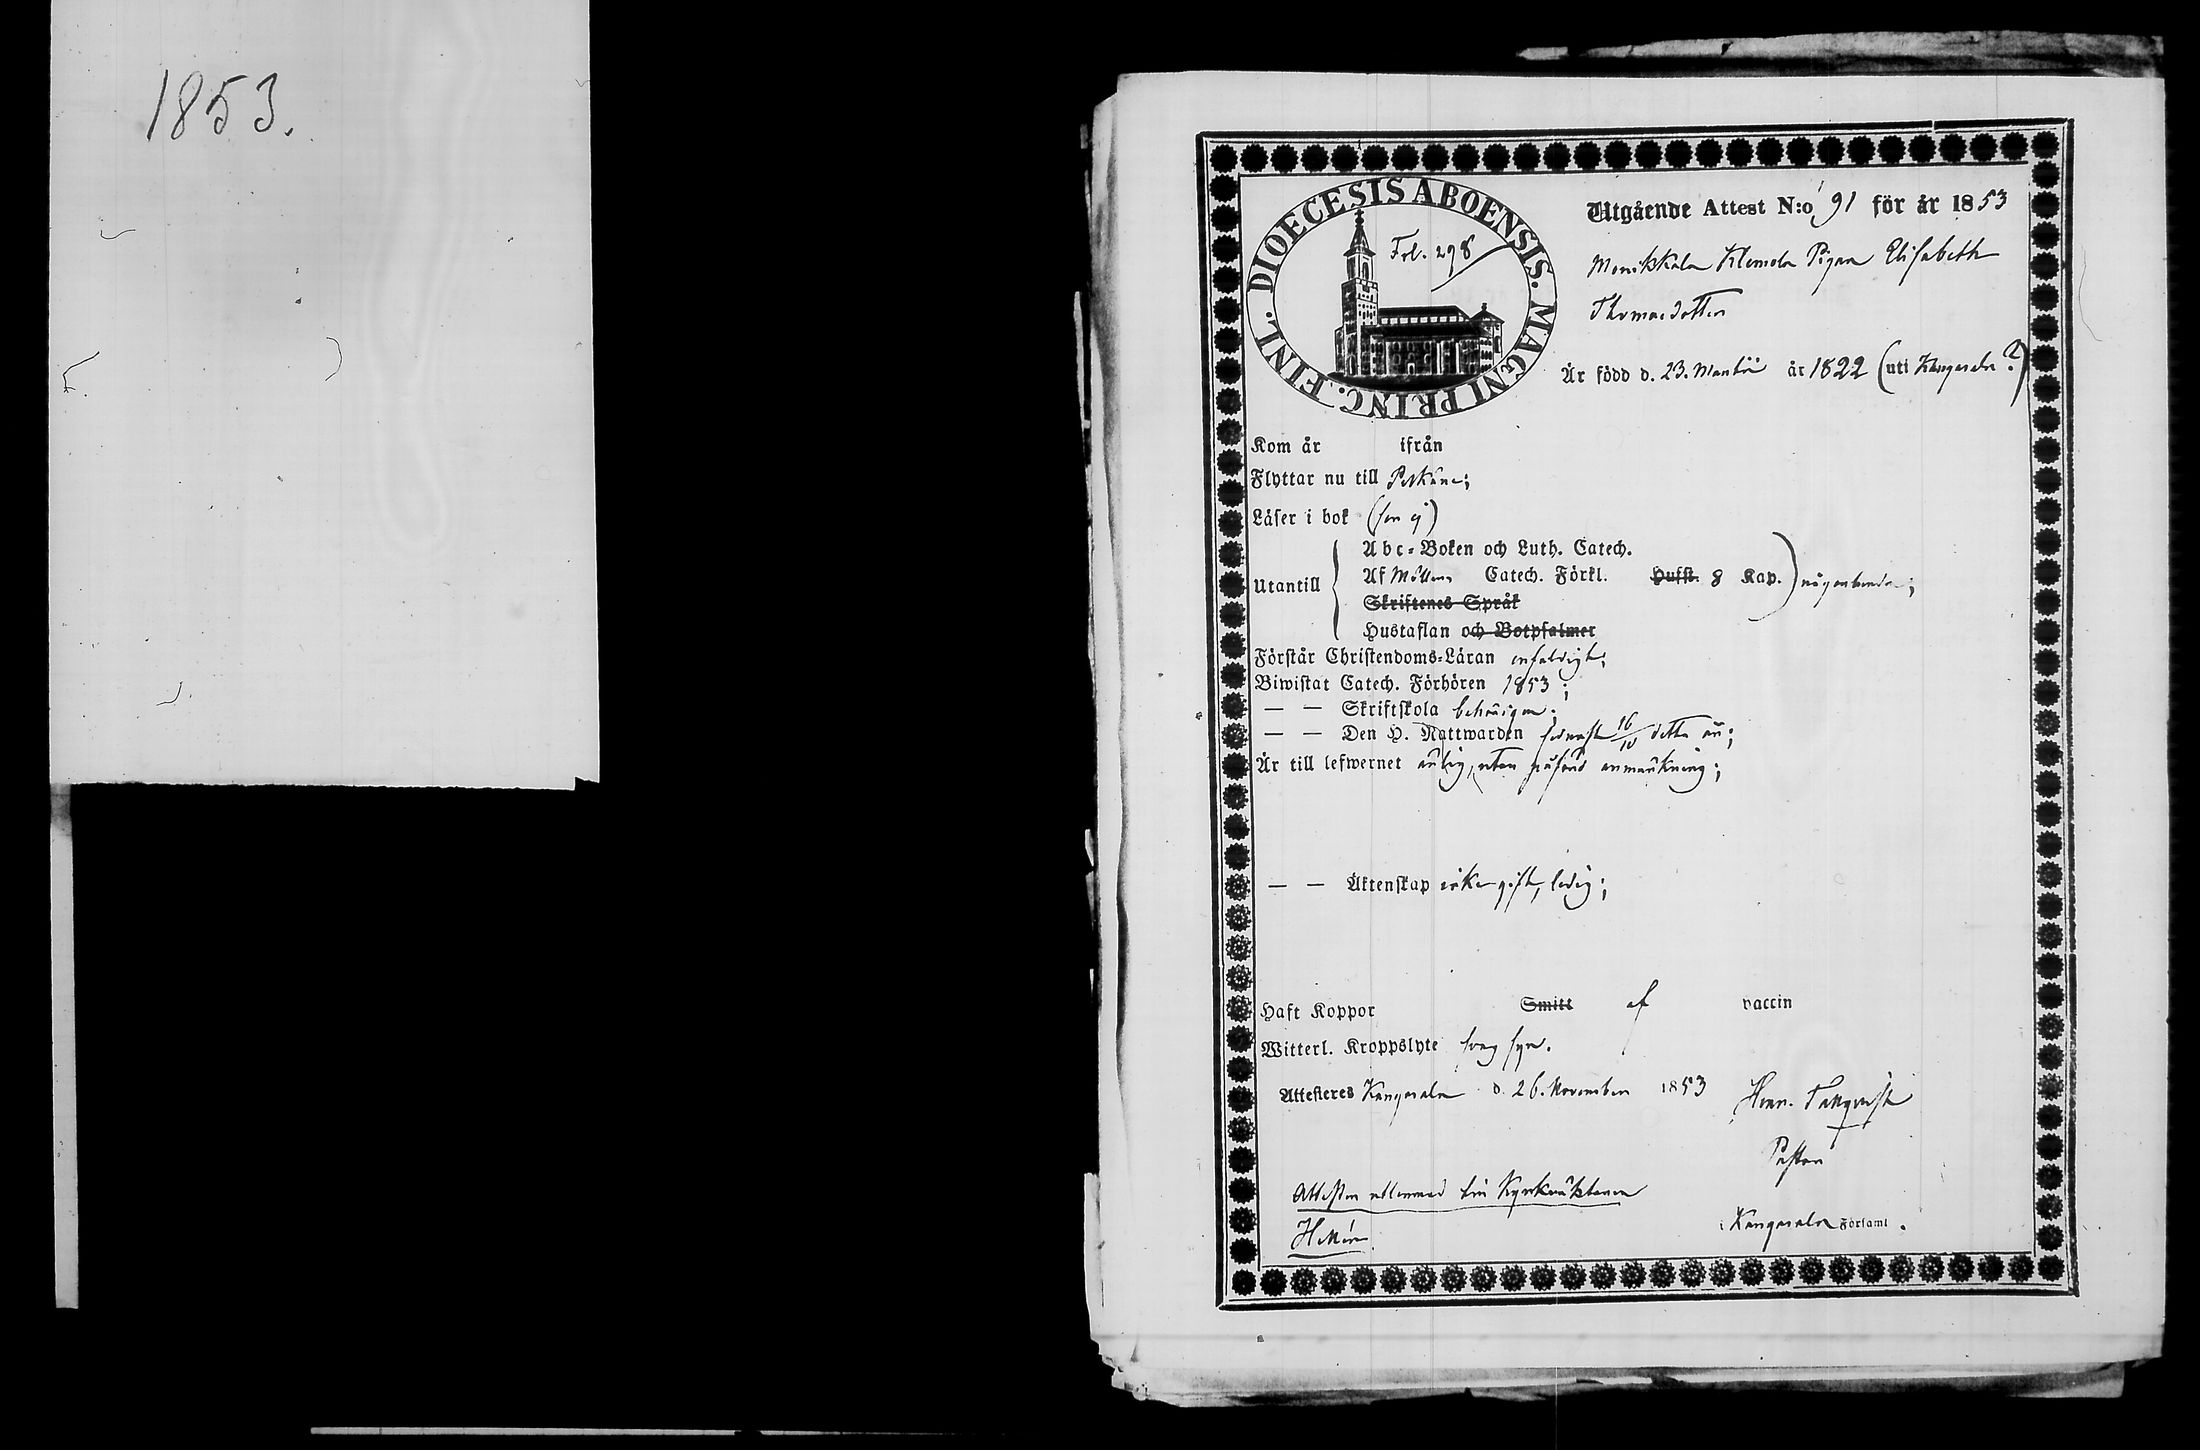 1853.
DIOECESIS ABOENSIS. MAGNI PRINC. FINL.
Fol. 298
Utgående Attest N:o 91 för år 1853
Klemola Pigan Elisabeth
Thomasdotter
Är född d. 23. Martii år 1822 (uti Kangasala?)
Kom år ifrån
Flyttar nu till Pelkäne;
Läser i bok (ser ej)
Utantill
Abc-Boken och Luth. Catech.
Af Catech. Förkl. Hufst. 8 Kap.) någorlunda;
Skriftenes Språk
Hustaflan och Botpsalmer
Förstår Christendoms-Läran enfaldigt;
Biwistat Catech. Förhören 1853;
— — Skriftskola behörigen;
— — Den H. Nattwarden sednast 16/10 detta år;
Är till lefwernet ärlig, utan anmärkning;
— — Äktenskap icke gift, ledig;
Haft Koppor Smitt af vaccin
Witterl. Kroppslyte svag syn.
Attesteres Kangasala d. 26. November 1853
Pastor
Attesten
i Kangasala Församl.